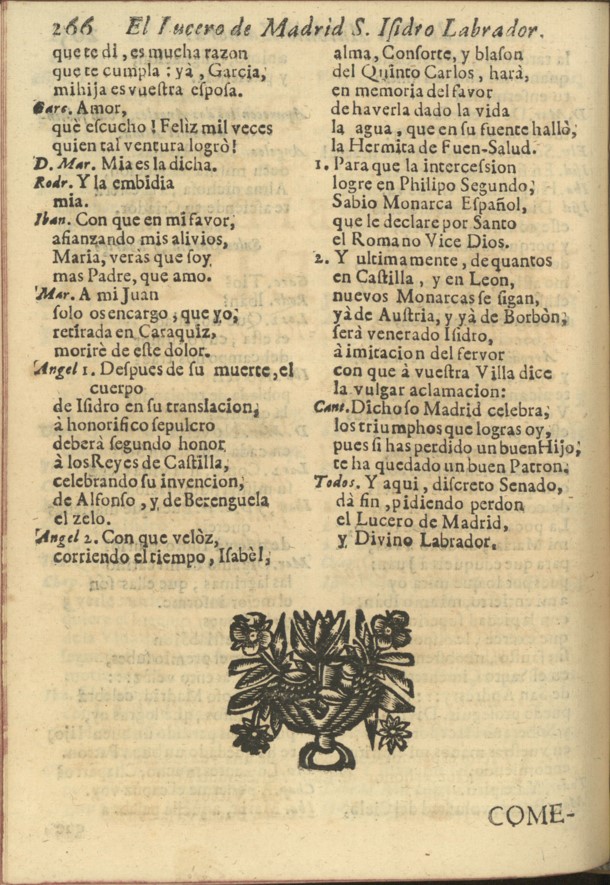 266 El Lucero de Madrid S. Isidro Labrador.
que te di, es mucha razon
que te cumpla: yà, Garcia,
mi hija es vuestra esposa.
Garc. Amor,
què escucho! Feliz mil veces
quien tal ventura logrò!
D. Mar. Mia es la dicha.
Rodr. Y la embidia
mia.
Iban. Con que en mi favor,
afianzando mis alivios,
Maria, veràs que soy
mas Padre, que amo.
Mar. A mi Juan
solo os encargo; que yo;
retirada en Caraquiz,
morirè de este dolor.
Angel 1. Despues de su muerte, el
cuerpo
de Isidro en su translacion,
à honorifico sepulcro
deberà segundo honor
à los Reyes de Castilla,
celebrando su invencion,
de Alfonso, y de Berenguela
el zelo.
Angel 2. Con que velòz,
corriendo el tiempo, Isabèl,
alma, Consorte, y blason
del Quinto Carlos, harà,
en memoria del favor
de haverla dado la vida
la agua, que en su fuente hallò,
la Hermita de Fuen-Salud.
1. Para que la intercession
logre en Philipo Segundo,
Sabio Monarca Español,
que le declare por Santo
el Romano Vice Dios.
2. Y ultimamente, de quantos
en Castilla, y en Leon,
nuevos Monarcas se sigan,
yà de Austria, y yà de Borbòn,
serà venerado Isidro,
à imitacion del fervor
con que à vuestra Villa dice
la vulgar aclamacion:
Cant. Dichoso Madrid celebra,
los triumphos que logras oy,
pues si has perdido un buen Hijo,
te ha quedado un buen Patron.
Todos. Y aqui, discreto Senado,
dà fin, pidiendo perdon
el Lucero de Madrid,
y Divino Labrador.
COME-